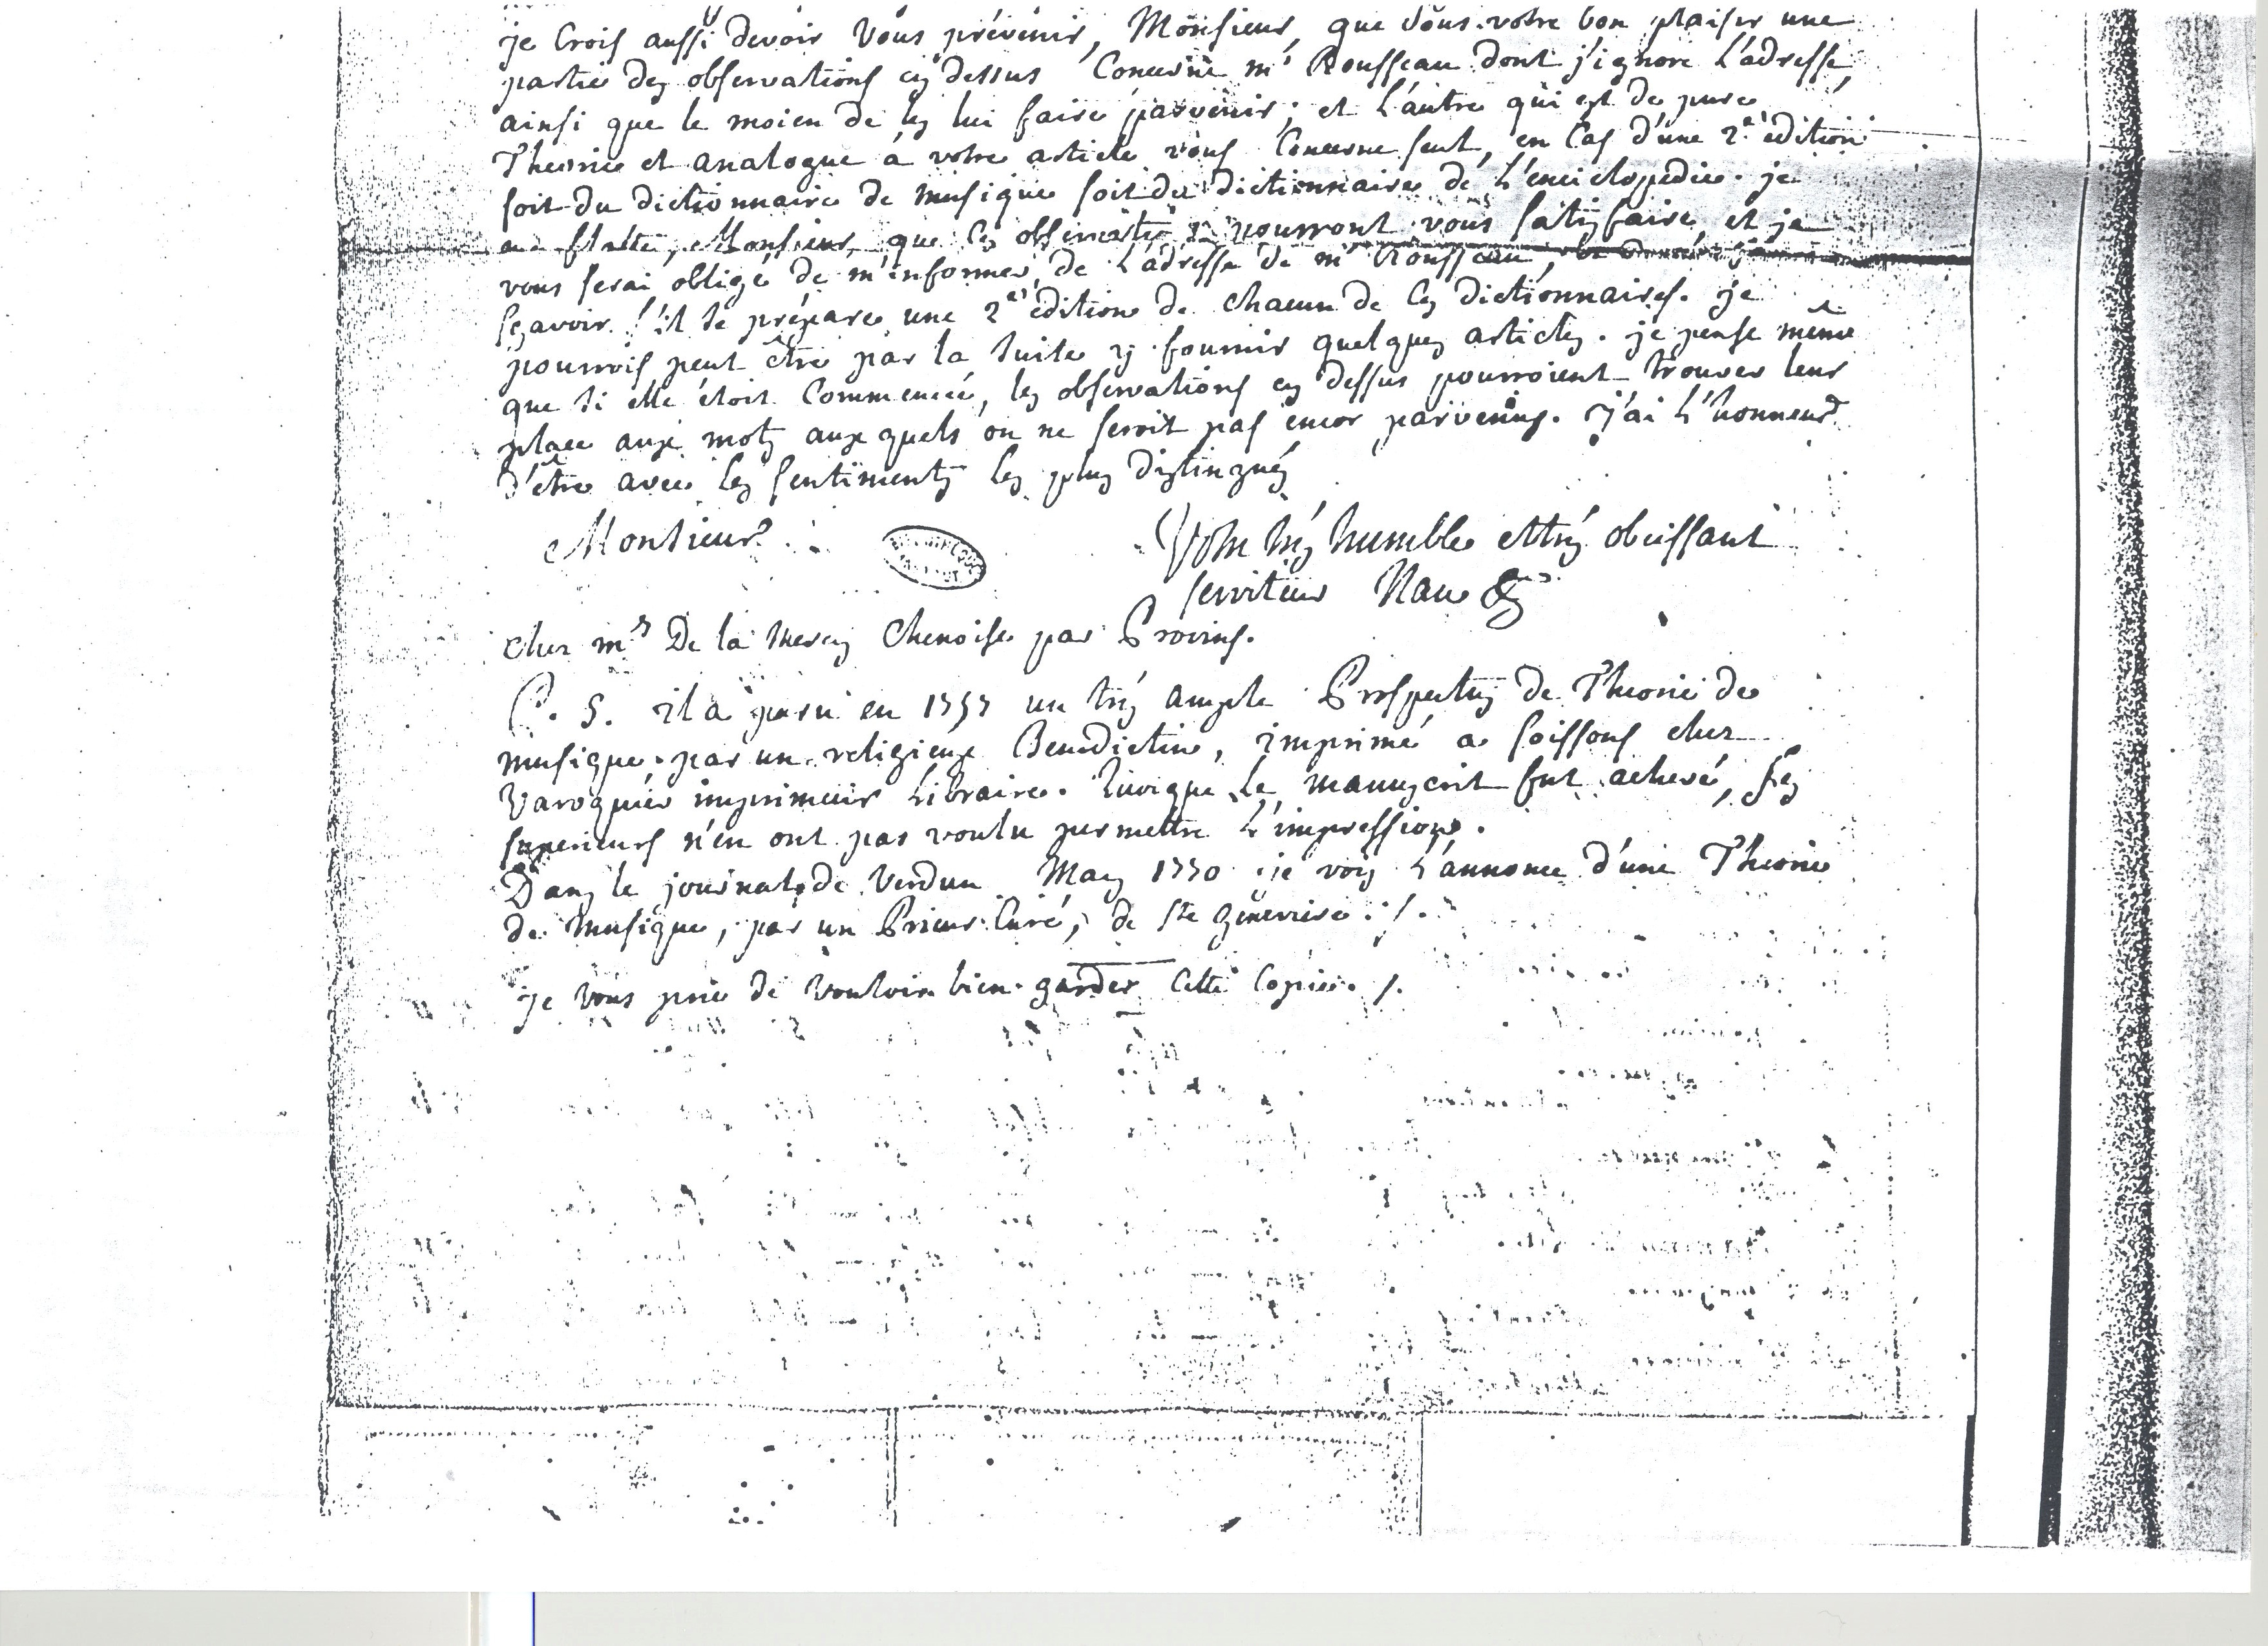 je Crois aussi devoir vous prévenir, Monsieur, que sous votre bon plaisir une
partie des observations cy dessus Concerne mr Rousseau dont j'ignore L'adresse
ainsi que le moien de les lui faire parvenir; et L'autre qui est de pure
Theorie et analogue à votre article vous Concerne seul, en Cas d'une 2e édition
soit du dictionnaire de Musique soit du dictionnaire de L'enciclopedie. je
me flatte, Monsieur, que ces observations pourront vous satisfaire, et je
vous serai obligé de m'informer de L'adresse de mr Rousseau,
sçavoir s'il se prépare une 2e édition de chacun de ces dictionnaires. je
pourrois peut être par la suite y fournir quelques articles. je pense même
que si elle étoit Commencée, les observations cy dessus pourroient trouver leur
place aux mots aux quels on ne seroit pas encor parvenus. J'ai L'honneur
d'être avec les sentiments les plus distingués
Monsieur
Votre très humble et très obeissant
serviteur
chez mr De la Chenoise par Provins.
P. S. il a paru en 1757 un très ample Prospectus de Theorie de
musique par un religieux Benedictin, imprimé a soissons chez
Varoquier imprimeur Libraire. Lorsque Le manuscrit fut achevé, ses
superieurs n'en ont pas voulu permettre L'impression.
Dans le journal de Verdun Mars 1770 je vois L'annonce d'une Theorie
de Musique, par un Prieur Curé, de Ste Genevieve ./.
je vous prie de vouloir bien garder Cette Copie ./.